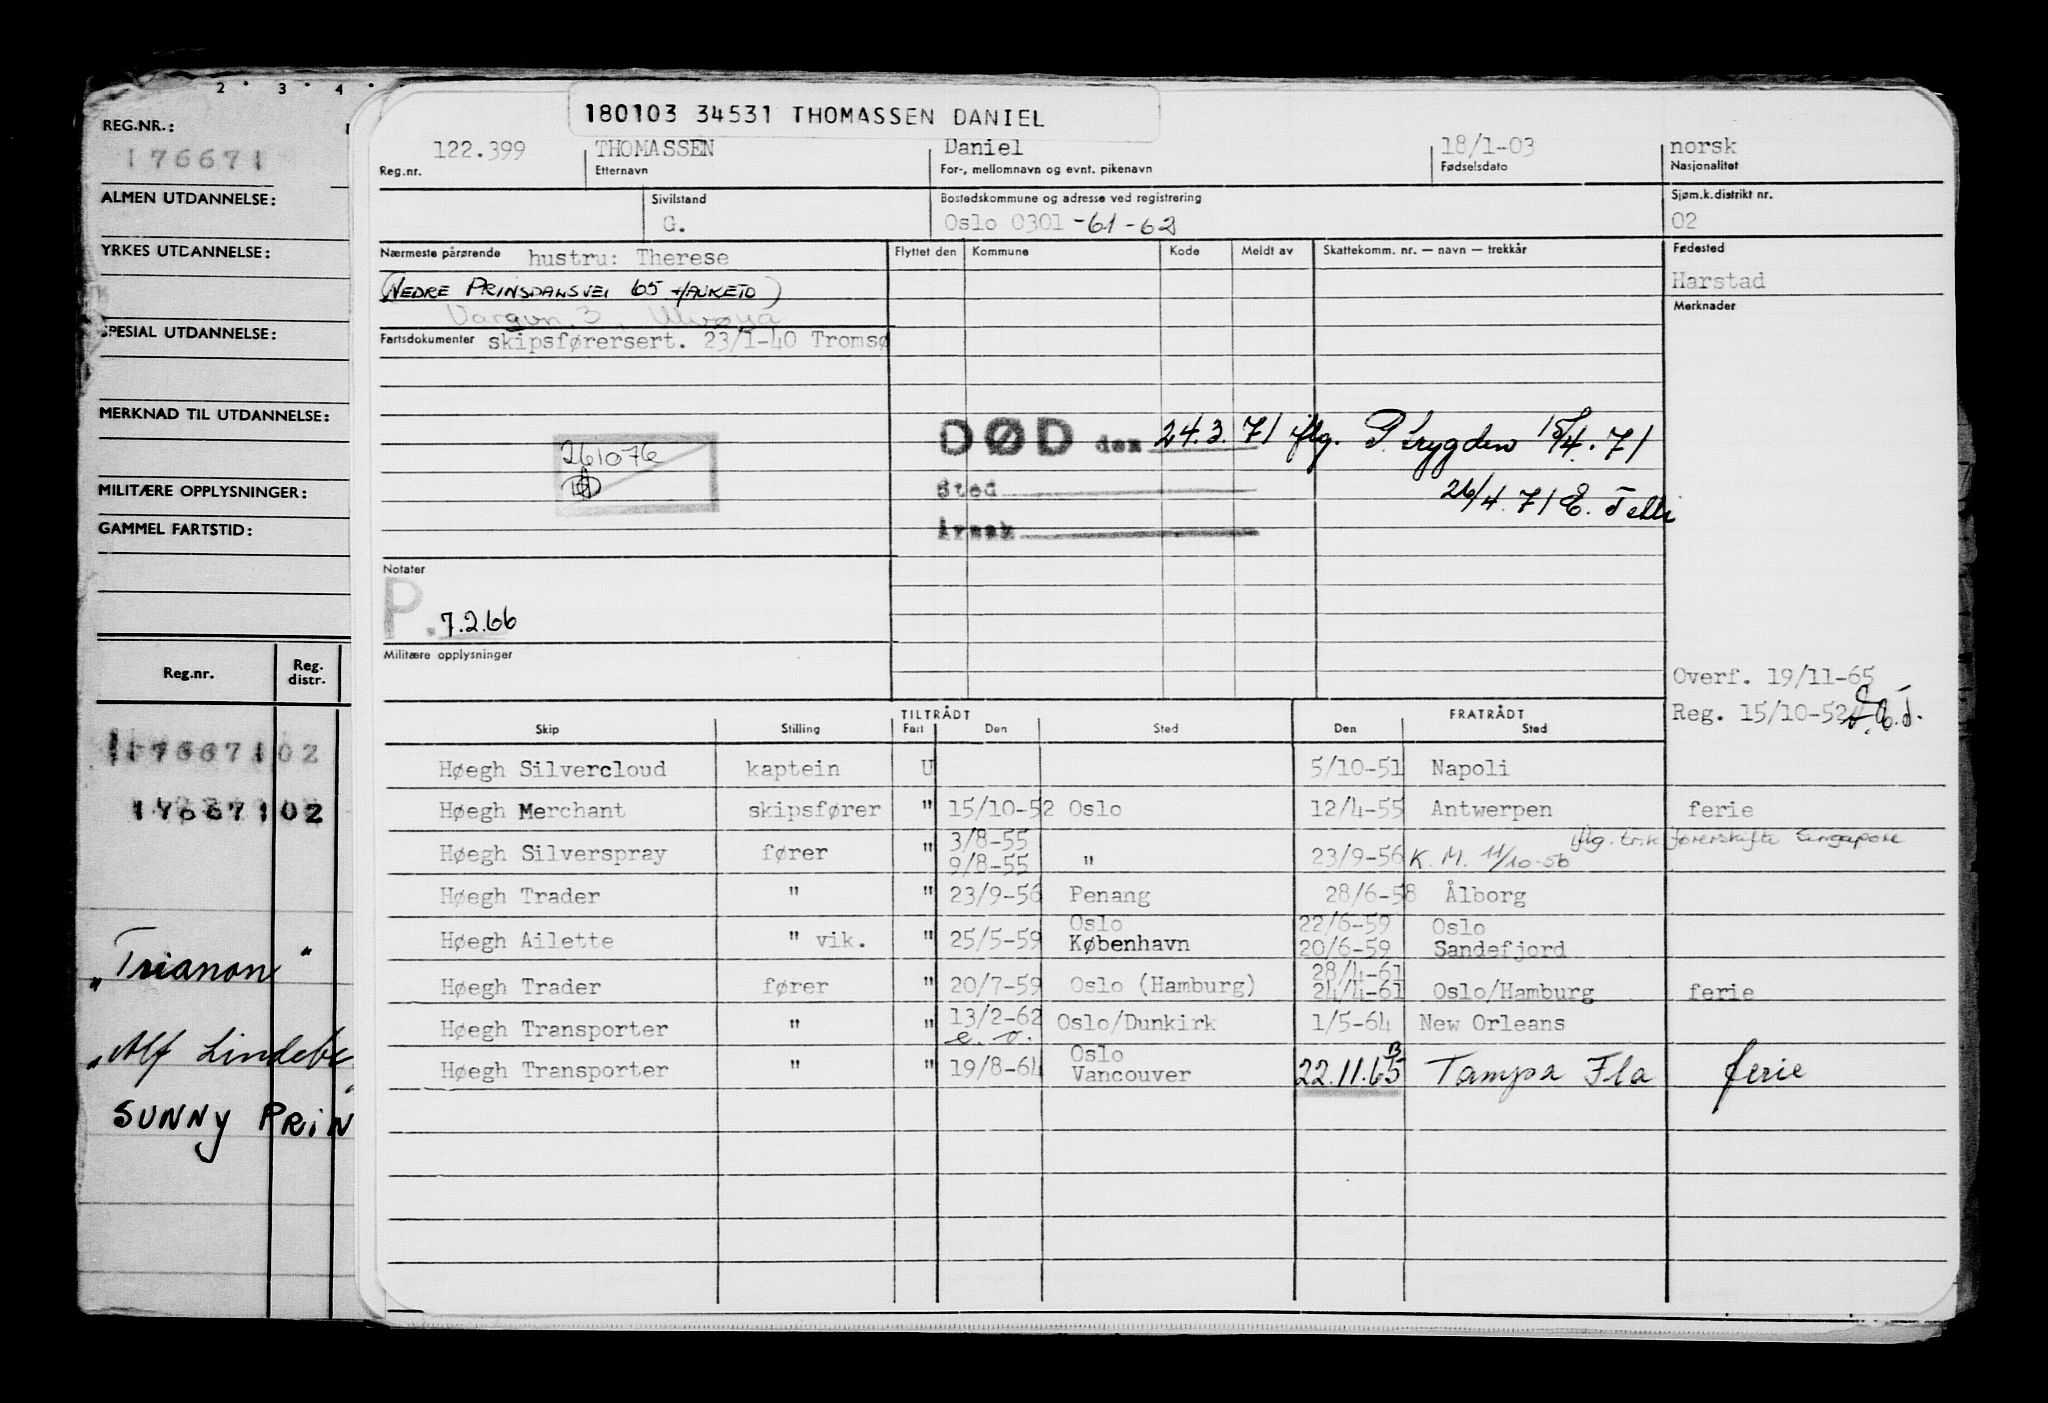 2 · 3 · 4 ·
REG.NR.:
176671
ALMEN UTDANNELSE:
YRKES UTDANNELSE:
SPESIAL UTDANNELSE:
MERKNAD TIL UTDANNELSE:
MILITÆRE OPPLYSNINGER:
GAMMEL FARTSTID:
Reg.nr. Reg. distr.
17667102
17667102
"Trianon"
"Alf Lindebe
SUNNY PRIN
180103 34531 THOMASSEN DANIEL
122.399 THOMASSEN Daniel 18/1-03 norsk
Reg.nr. Etternavn For-, mellomnavn og evnt. pikenavn Fødselsdato Nasjonalitet
Sivilstand Bostedskommune og adresse ved registrering Sjøm.k.distrikt nr.
G. Oslo 0301 -61-62 02
Nærmeste pårørende hustru: Therese Flyttet den Kommune Kode Meldt av Skattekomm. nr. — navn — trekkår Fødested
(NEDRE PRINSDALSVEI 65 HAUKETO) Harstad
Ulvøya Merknader
Fartsdokumenter skipsførersert. 23/1-40 Tromsø
DØD den 24.3.71 iflg. P.trygden 15/4.71
261076
Sted 26/4.71 E.
Årsak
Notater
P. 7.2.66
Militære opplysninger
Overf. 19/11-65
Reg. 15/10-52 E.T.
TILTRÅDT FRATRÅDT
Skip Stilling Fart Den Sted Den Sted
Høegh Silvercloud kaptein U 5/10-51 Napoli
Høegh Merchant skipsfører " 15/10-52 Oslo 12/4-55 Antwerpen ferie
3/8-55 iflg. tr.k førerskifte Singapore
Høegh Silverspray fører " 9/8-55 " 23/9-56 K. M. 11/10-56
Høegh Trader " " 23/9-56 Penang 28/6-58 Ålborg
Oslo 22/6-59 Oslo
Høegh Ailette " vik. " 25/5-59 København 20/6-59 Sandefjord
28/4-61
Høegh Trader fører " 20/7-59 Oslo (Hamburg) 24/4-61 Oslo/Hamburg ferie
Høegh Transporter " " 13/2-62 Oslo/Dunkirk 1/5-64 New Orleans
e. o.
Oslo
Høegh Transporter " " 19/8-64 Vancouver 22.11.65 Tampa Fla ferie